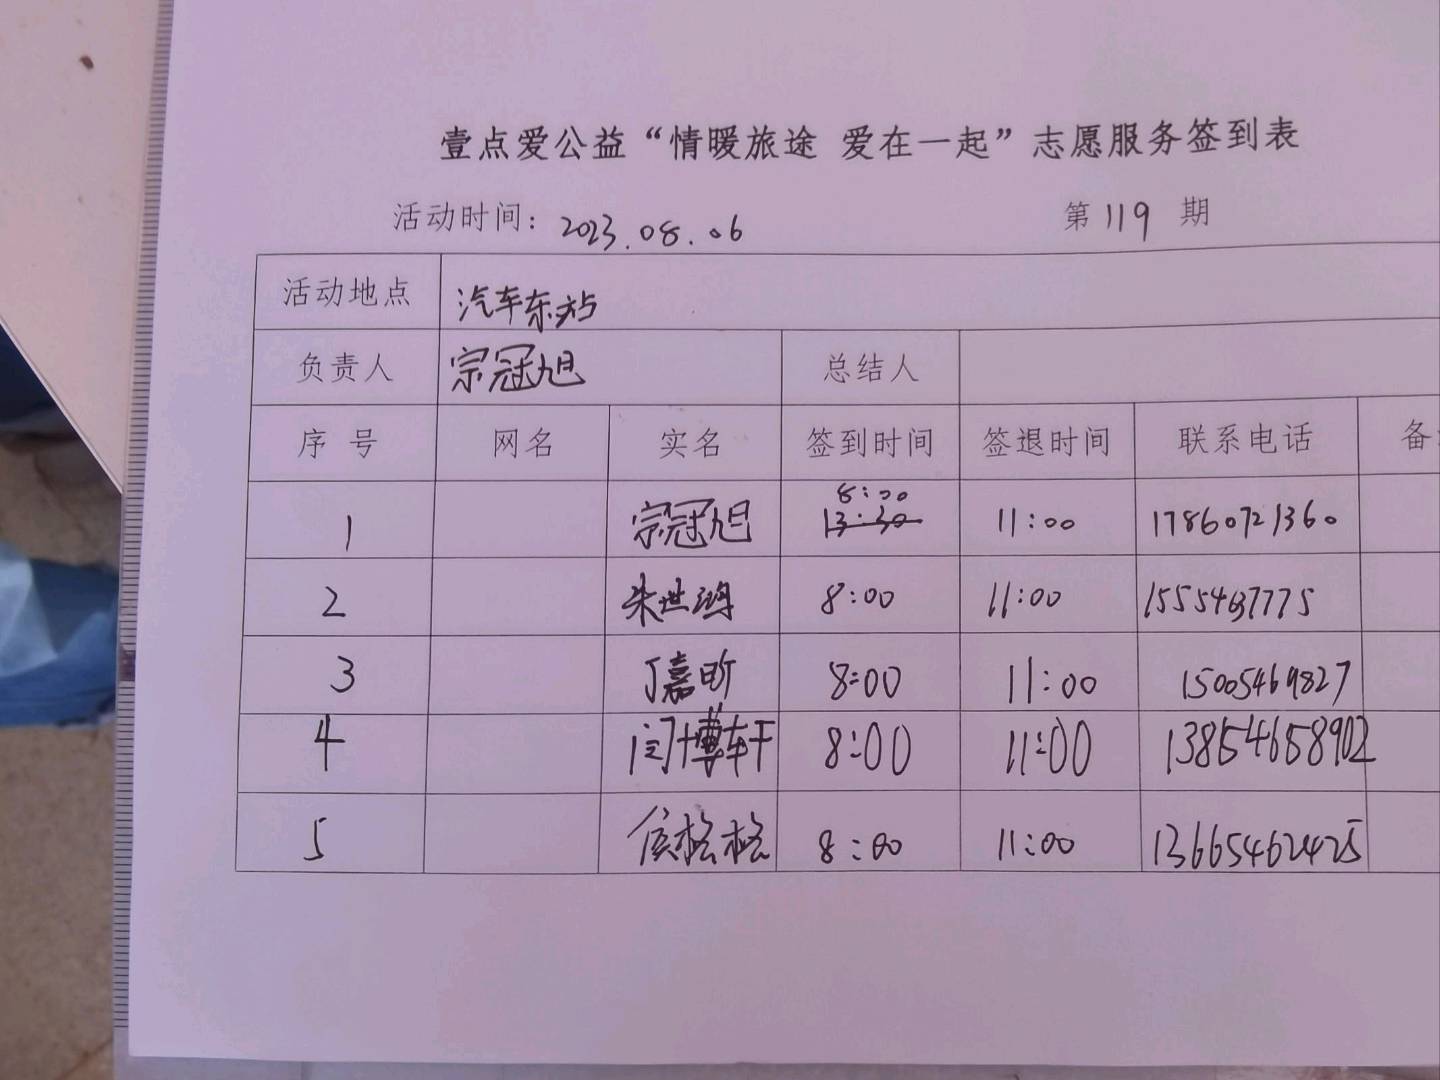 壹点爱公益“情暖旅途 爱在一起”志愿服务签到表
活动时间：2023.08.06 第119期
活动地点 汽车东站
负责人 宗冠旭 总结人
序号 网名 实名 签到时间 签退时间 联系电话 备
1 宗冠旭 8:00 13:30 11:00 17860721360
2 朱世鸿 8:00 11:00
3 丁嘉昕 8:00 11:00 15005469827
4 闫博轩 8:00 11:00 13854658902
5 侯格格 8:00 11:00 13665462425